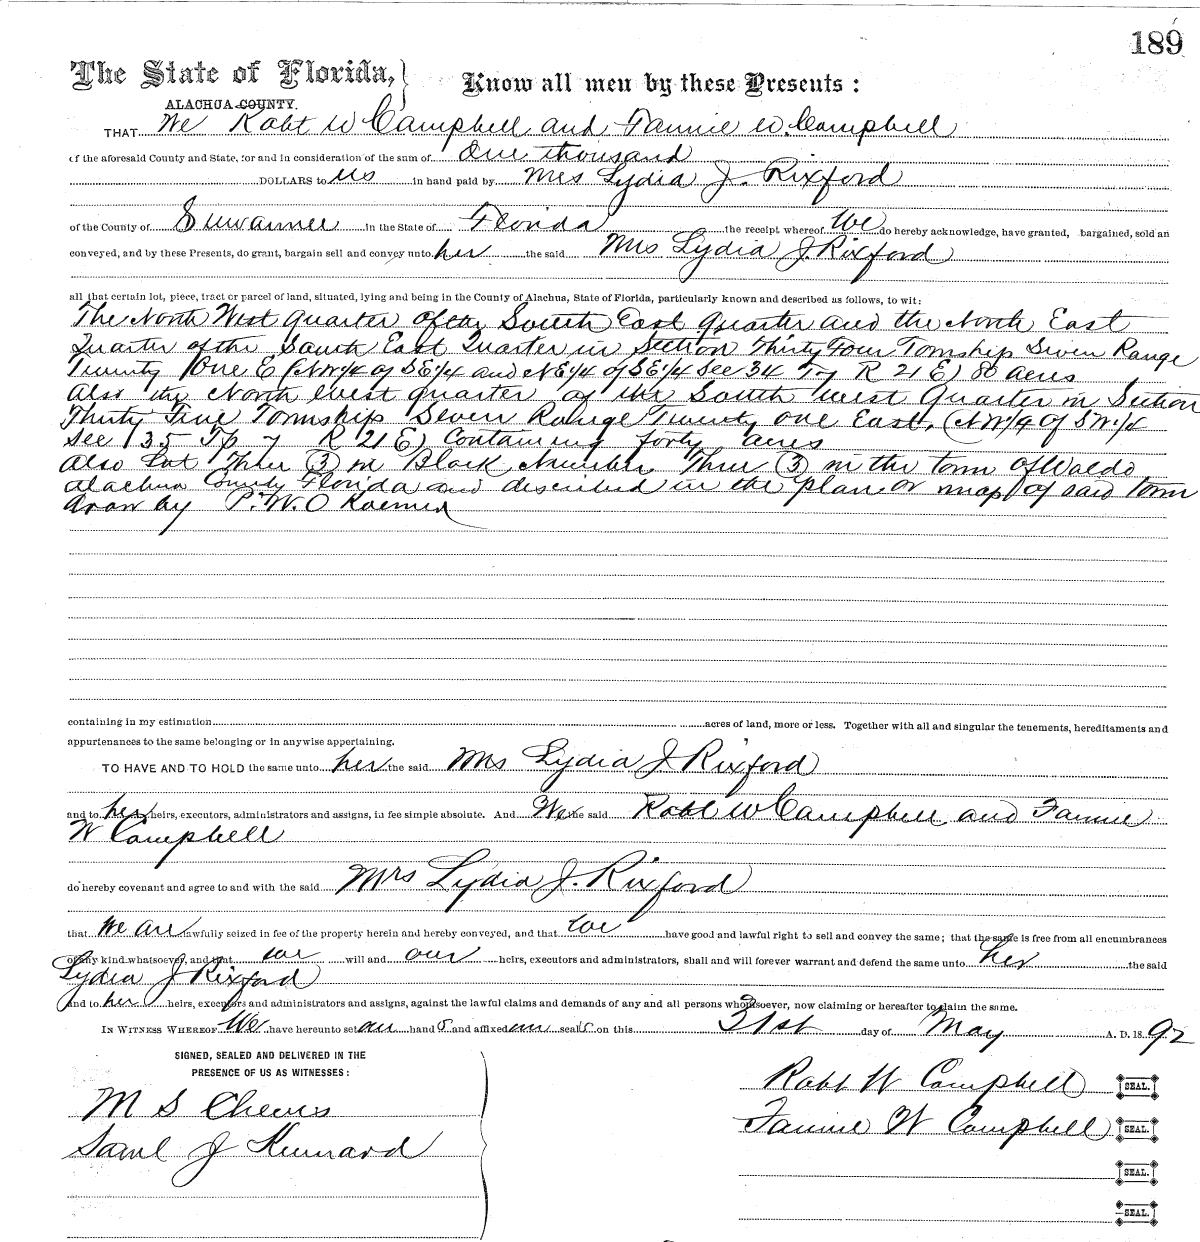 189
The State of Florida, Know all men by these Presents :
ALACHUA COUNTY.
THAT We Robt W Campbell and Fannie W. Campbell
of the aforesaid County and State, for and in consideration of the sum of One thousand
DOLLARS to us in hand paid by Mrs Lydia J. Rixford
of the County of Suwannee in the State of Florida the receipt whereof We do hereby acknowledge, have granted, bargained, sold an
conveyed, and by these Presents, do grant, bargain sell and convey unto her the said Mrs Lydia J. Rixford
all that certain lot, piece, tract or parcel of land, situated, lying and being in the County of Alachua, State of Florida, particularly known and described as follows, to wit:
The North West Quarter of the South East Quarter and the North East
Quarter of the South East Quarter in Section Thirty Four Township Seven Range
Twenty One E (NW1/4 of SE1/4 and NE1/4 of SE1/4 Sec 34 T7 R 21 E) 80 acres
Also the North West quarter of the South West Quarter in Section
Thirty Five Township Seven Range Twenty one East, (NW1/4 of SW1/4
Sec 35 Tp 7 R 21 E) Containing forty acres
Also Lot Three (3) in Block Number Three (3) in the town of Waldo
Alachua County Florida and described in the plan or map of said town
drawn by P. W. O Koerner
containing in my estimation acres of land, more or less. Together with all and singular the tenements, hereditaments and
appurtenances to the same belonging or in anywise appertaining.
TO HAVE AND TO HOLD the same unto her the said Mrs Lydia J Rixford
and to her heirs, executors, administrators and assigns, in fee simple absolute. And We the said Robt W Campbell and Fannie
W Campbell
do hereby covenant and agree to and with the said Mrs Lydia J. Rixford
that we are lawfully seized in fee of the property herein and hereby conveyed, and that we have good and lawful right to sell and convey the same; that the same is free from all encumbrances
of any kind whatsoever, and that we will and our heirs, executors and administrators, shall and will forever warrant and defend the same unto her the said
Lydia J Rixford
and to her heirs, executors and administrators and assigns, against the lawful claims and demands of any and all persons whomsoever, now claiming or hereafter to claim the same.
IN WITNESS WHEREOF We have hereunto set our hands and affixed our seals on this 31st day of May A. D. 1892
SIGNED, SEALED AND DELIVERED IN THE
PRESENCE OF US AS WITNESSES:
Robt W Campbell SEAL.
M S Cheves
Fannie W Campbell SEAL.
Saml J Kennard
SEAL.
SEAL.